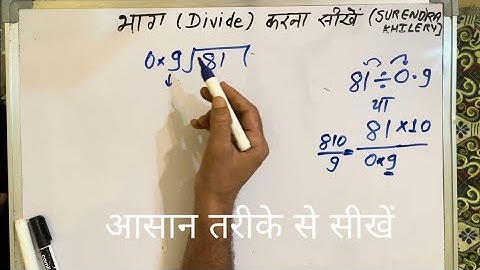 भाग (Divide) करना सीखें (SURENDRA
KHILERY)
0×9 81
81÷0.9
या
810 = 81×10
9 0×9
आसान तरीके से सीखें